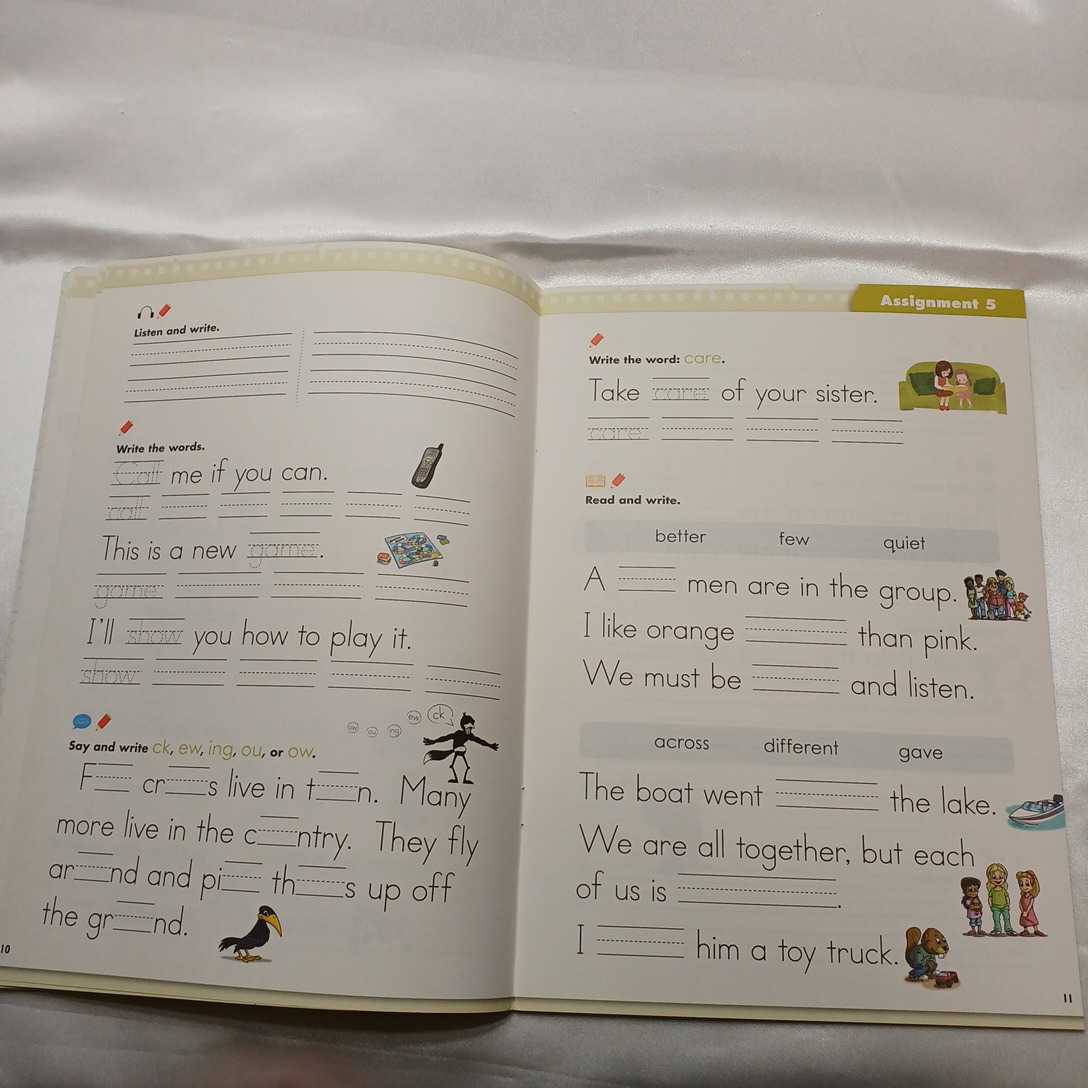 Listen and write.
Write the words.
Call me if you can.
call
This is a new game.
game
I'll show you how to play it.
show
ow ou ing ew ck
Say and write ck, ew, ing, ou, or ow.
F___ cr___s live in t___n. Many
more live in the c___ntry. They fly
ar___nd and pi___ th___s up off
the gr___nd.
10
Assignment 5
Write the word: care.
Take care of your sister.
care
Read and write.
better few quiet
A ___ men are in the group.
I like orange ___ than pink.
We must be ___ and listen.
across different gave
The boat went ___ the lake.
We are all together, but each
of us is ___.
I ___ him a toy truck.
11